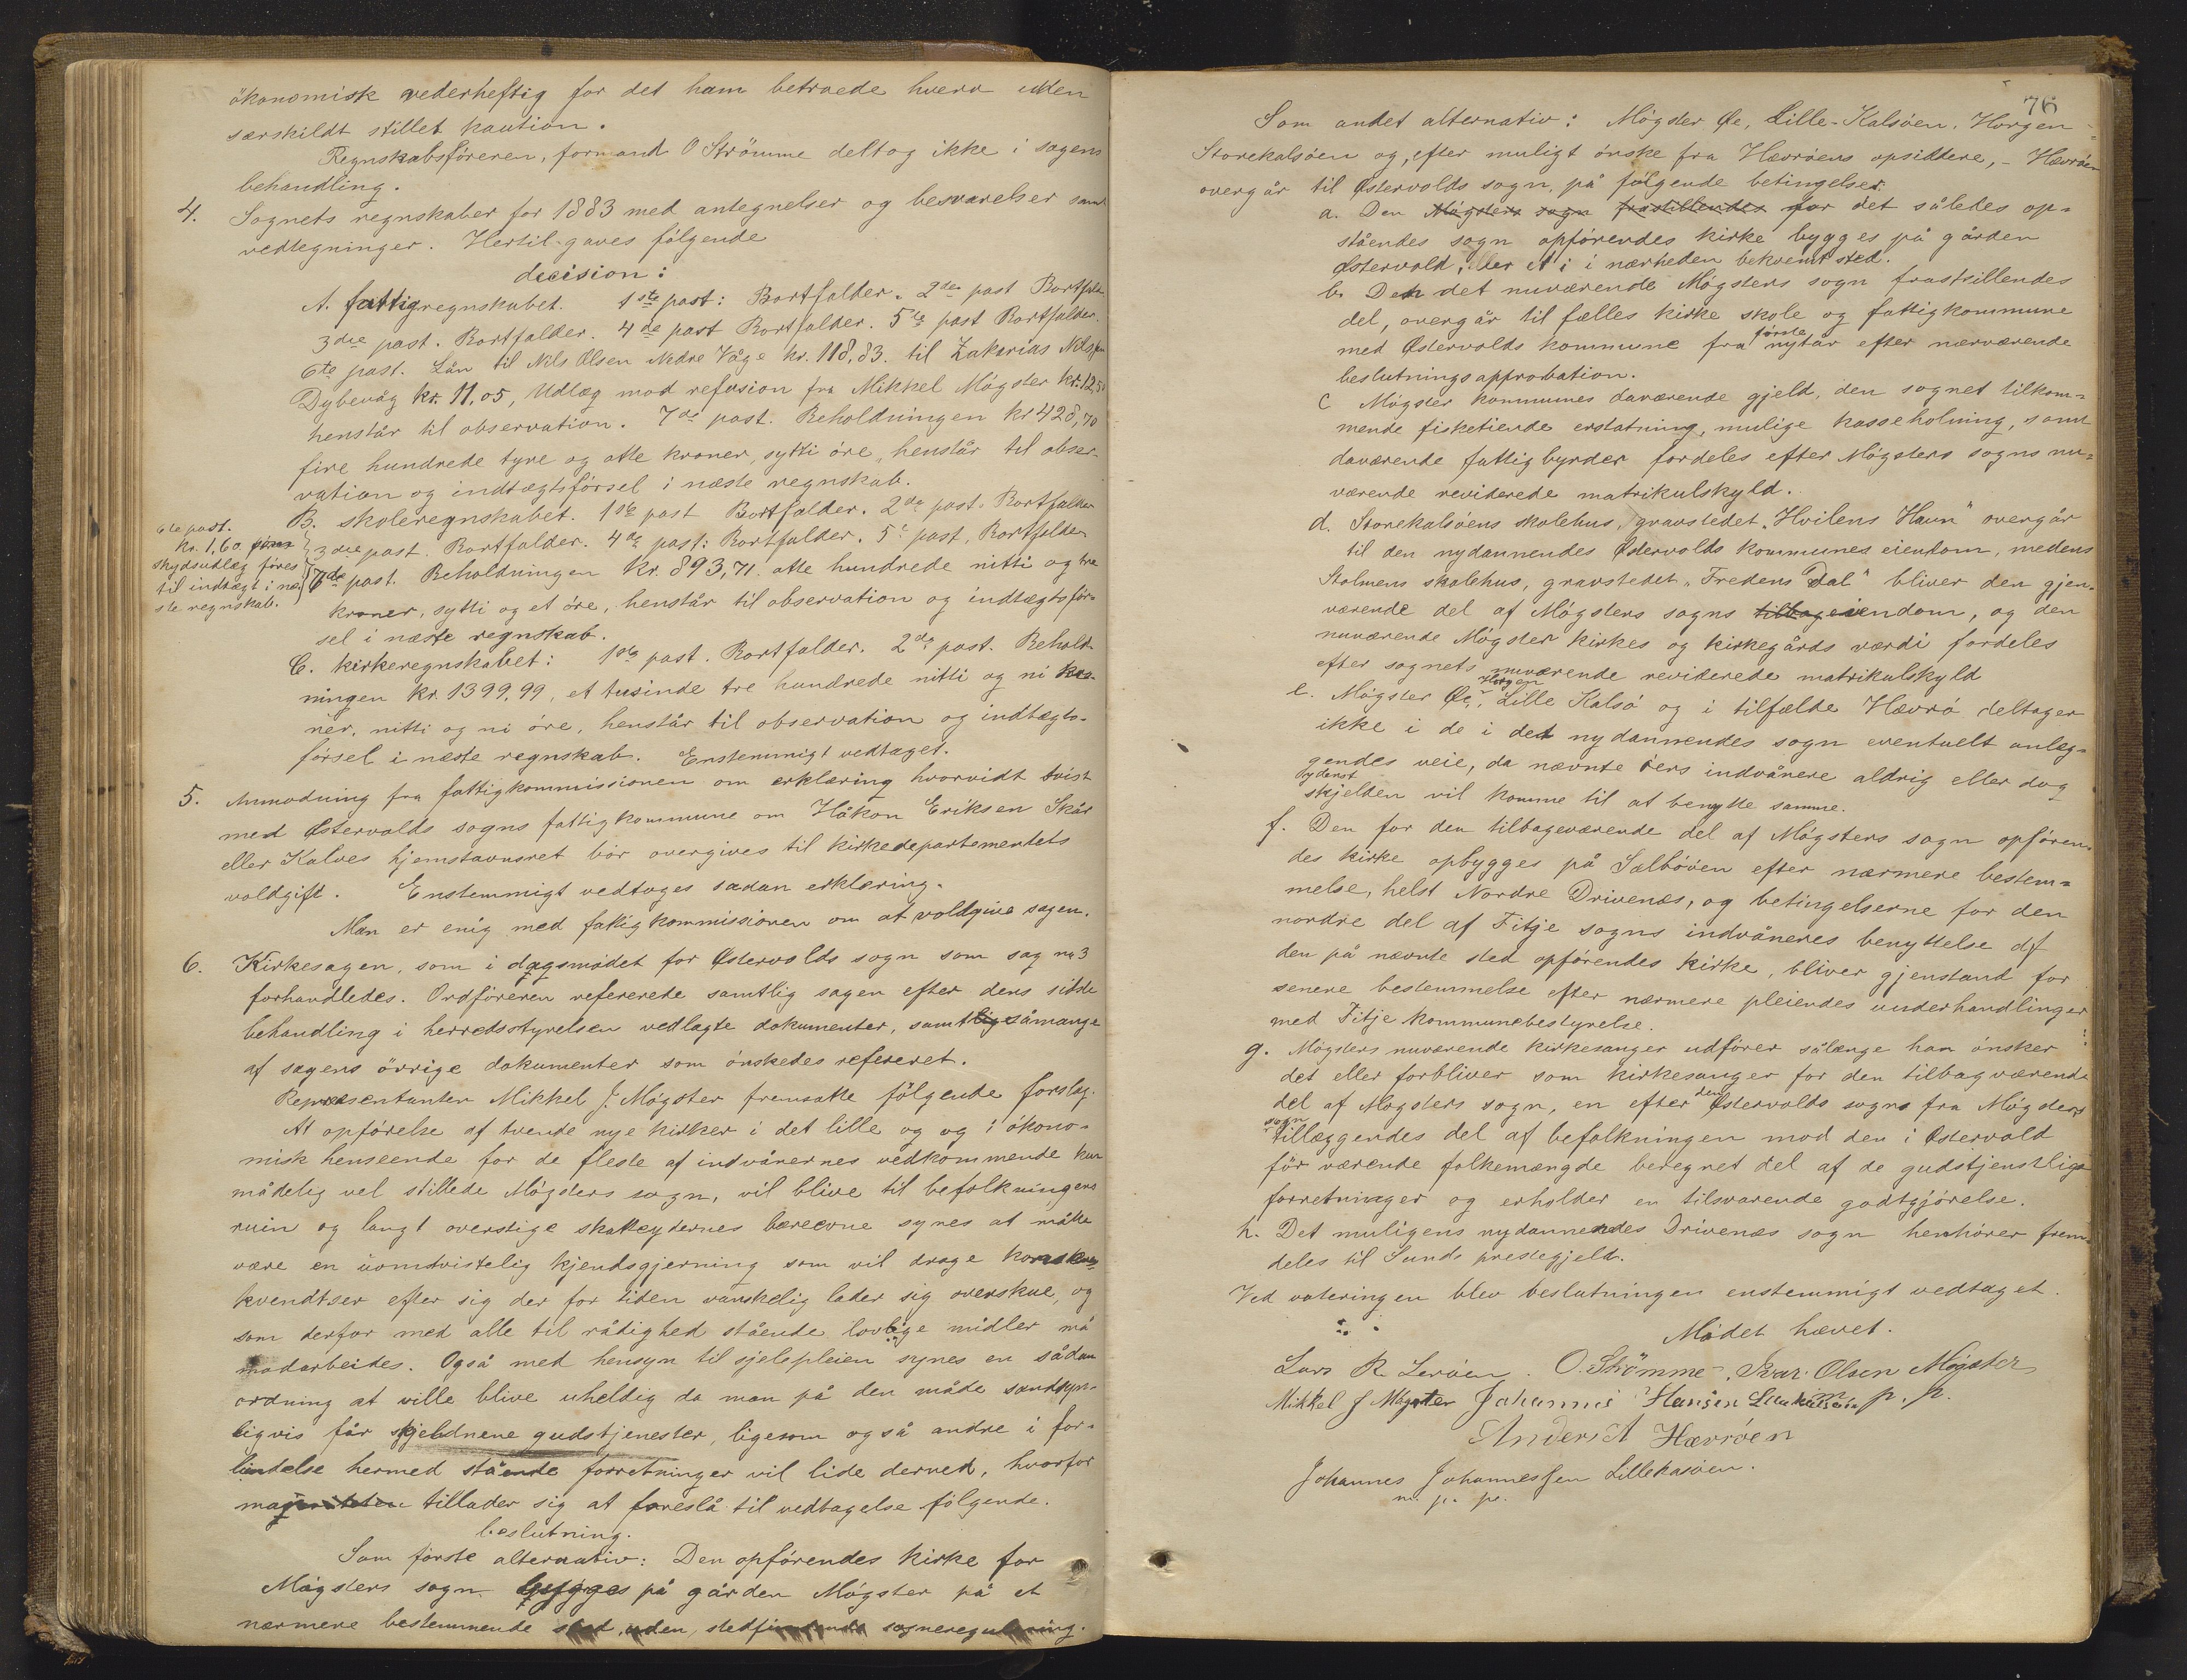 ökonomisk vederheftig for det ham betroede hverv uden
særskildt stillet kaution.
Regnskabsföreren, formand O Strömme deltog ikke i sagens
behandling.
4. Sognets regnskaber for 1883 med antegnelser og besvarelser samt
vedtegninger. Hertil gaves fölgende
decision:
A. fattigregnskabet. 1ste post: Bortfalder. 2den post Bortfalder
3die post. Bortfalder. 4de post Bortfalder. 5te post Bortfalder.
6te post. Lån til Nils Olsen Nedre Våge kr. 118,83. til Zakarias Nilsen
Dybevåg kr. 11,05, Udlæg mod refusion fra Mikkel Mögster kr. 12,50
henstår til observation. 7de post. Beholdningen kr 428,70
fire hundrede tyve og otte kroner, sytti öre, henstår til obser-
vation og indtægtsförsel i næste regnskab.
B. skoleregnskabet. 1ste post Bortfalder. 2den post. Bortfalder
6te post.
kr. 1,60
skydsudlæg föres
til indtægt i næ-
ste regnskab.
3die post. Bortfalder. 4de post: Bortfalder. 5te post, Bortfalder
7de post. Beholdningen kr. 893,71. otte hundrede nitti og tre
kroner, sytti og et öre, henstår til observation og indtægtsför-
sel i næste regnskab.
C. kirkeregnskabet: 1ste post. Bortfalder. 2den post. Behold-
ningen kr. 1399,99, et tusinde tre hundrede nitti og ni kro-
ner, nitti og ni öre, henstår til observation og indtægts-
försel i næste regnskab. Enstemmigt vedtaget.
5. Anmodning fra fattigkommissionen om erklæring hvorvidt tvist
med Østervolds sogns fattigkommune om Håkon Eriksen Skår
eller Kalves hjemstavnsret bör overgives til kirkedepartementets
voldgift. Enstemmigt vedtoges sådan erklæring.
Man er enig med fattigkommissionen om at voldgive sagen.
6. Kirkesagen, som i dagsmödet for Østervolds sogn som sag no 3
forhandledes. Ordföreren refererede samtlig sagen efter dens sidste
behandling i herredsstyrelsen vedlagte dokumenter, samt såmange
af sagens övrige dokumenter som önskedes refereret.
Repræsentanten Mikkel J. Mögster fremsatte fölgende forslag.
At opförelse af tvende nye kirker i det lille og og i ökono-
misk henseende for de fleste af indvånernes vedkommende kun
mådelig vel stillede Mögsters sogn, vil blive til befolkningens
ruin og langt overstige skatteydernes bæreevne synes at måtte
være en uomtvistelig kjendsgjerning som vil drage konse-
kvendtser efter sig der for tiden vanskelig lader sig overskue, og
som derfor med alle til rådighed stående lovlige midler må
modarbeides. Også med hensyn til sjelepleien synes en sådan
ordning at ville blive uheldig da man på den måde sandsyn-
ligvis får sjeldnere gudstjenester, ligesom også andre i for-
bindelse hermed stående forretninger vil lide derved, hvorfor
majoriteten tillader sig at foreslå til vedtagelse fölgende.
beslutning.
Som förste alternativ: Den opförendes kirke for
Mögsters sogn bygges på gården Mögster på et
nærmere bestemmende sted, uden stedfindende sogneregulering.
76
Som andet alternativ: Mögster Øe, Lille-Kalsöen, Horgen -
Storekalsöen og, efter muligt önske fra Hævröens opsiddere, - Hævröen
overgår til Østervolds sogn, på fölgende betingelser.
a. Den Mögsters sogn frastillendes for det således op-
ståendes sogn opförendes kirke bygges på gården
Østervold, eller et i i nærheden bekvemt sted.
b. Den det nuværende Mögsters sogn frastillendes
del, overgår til fælles kirke skole og fattigkommune
med Østervolds kommune fra förste nytår efter nærværende
beslutnings approbation.
c Mögster kommunes daværende gjeld, den sognet tilkom-
mende fisketiende erstatning, mulige kasseholning, samt
daværende fattigbyrder fordeles efter Mögsters sogns nu-
værende reviderede matrikulskyld.
d. Storekalsöens skolehus, gravstedet „Hvilens Havn" overgår
til den nydannendes Østervolds kommunes eiendom, medens
Stolmens skolehus, gravstedet „Fredens Dal" bliver den gjen-
værende del af Mögsters sogns eiendom, og den
nuværende Mögster kirkes og kirkegårds værdi fordeles
efter sognets nuværende reviderede matrikulskyld
e. Mögster Øe, Horgen Lille Kalsö og i tilfælde Hævrö deltager
ikke i de i det nydannendes sogn eventuelt anlæg-
gendes veie, da nævnte öers indvånere aldrig eller dog
ydenst
skjelden vil komme til at benytte samme.
f. Den for den tilbageværende del af Mögsters sogn opfören-
des kirke opbygges på Selböen efter nærmere bestem-
melse, helst Nordre Drivenæs, og betingelserne for den
nordre del af Fitje sogns indvåneres benyttelse af
den på nævnte sted opförendes kirke, bliver gjenstand for
senere bestemmelse efter nærmere pleiendes underhandlinger
med Fitje kommunebestyrelse.
g. Mögsters nuværende kirkesanger udförer sålænge han önsker
det eller forbliver som kirkesanger for den tilbagværende
del af Mögsters sogn, en efter den Østervolds sogns fra Mögsters
sogn
tillæggendes del af befolkningen mod den i Østervold
för værende folkemængde beregnet del af de gudstjenstlige
forretninger og erholder en tilsvarende godtgjörelse.
h. Det muligens nydannendes Drivenæs sogn henhörer frem-
deles til Sunds prestegjeld.
Ved voteringen blev beslutningen enstemmigt vedtaget.
Mödet hævet.
Lars R. Leröen. O. Strömme. Ivar Olsen Mögster
Mikkel J Mögster Johannis Hansen m. p. p.
Anders A Hævröen
Johannes Johannessen Lillekasöen.
m. p. p.